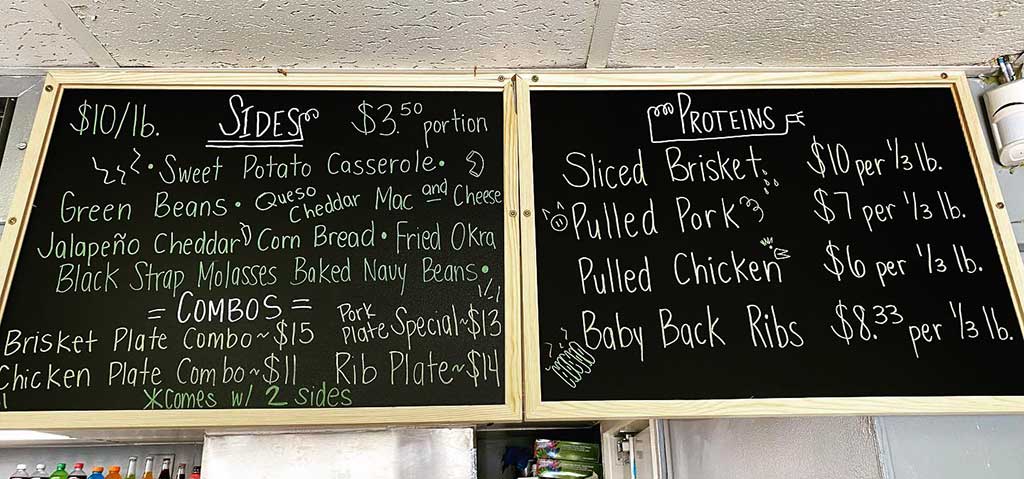 $10/lb. SIDES $3.50 portion
• Sweet Potato Casserole •
Green Beans • Queso Cheddar Mac and Cheese
Jalapeño Cheddar Corn Bread • Fried Okra
Black Strap Molasses Baked Navy Beans •
= COMBOS =
Brisket Plate Combo ~ $15 Pork Plate Special ~ $13
Chicken Plate Combo ~ $11 Rib Plate ~ $14
*Comes w/ 2 sides
PROTEINS
Sliced Brisket $10 per 1/3 lb.
Pulled Pork $7 per 1/3 lb.
Pulled Chicken $6 per 1/3 lb.
Baby Back Ribs $8.33 per 1/3 lb.